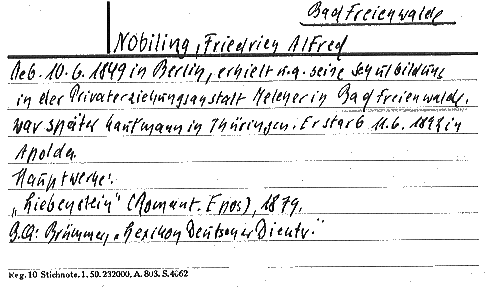 Bad Freienwalde
Nobiling, Friedrich Alfred
Geb. 10.6.1849 in Berlin, erhielt u.a. seine Schulbildung
in der Privaterziehungsanstalt Melcher in Bad Freienwalde.
war später Kaufmann in Thüringen. Er starb 11.6.1892 in
Apolda.
Hauptwerke:
„Liebenstein" (Romant. Epos), 1879.
B.Qu: Brümmer, „Lexikon Deutscher Dichtr."
Reg. 10 Stichnote. 1, 50. 232000, A. 803. S.4062